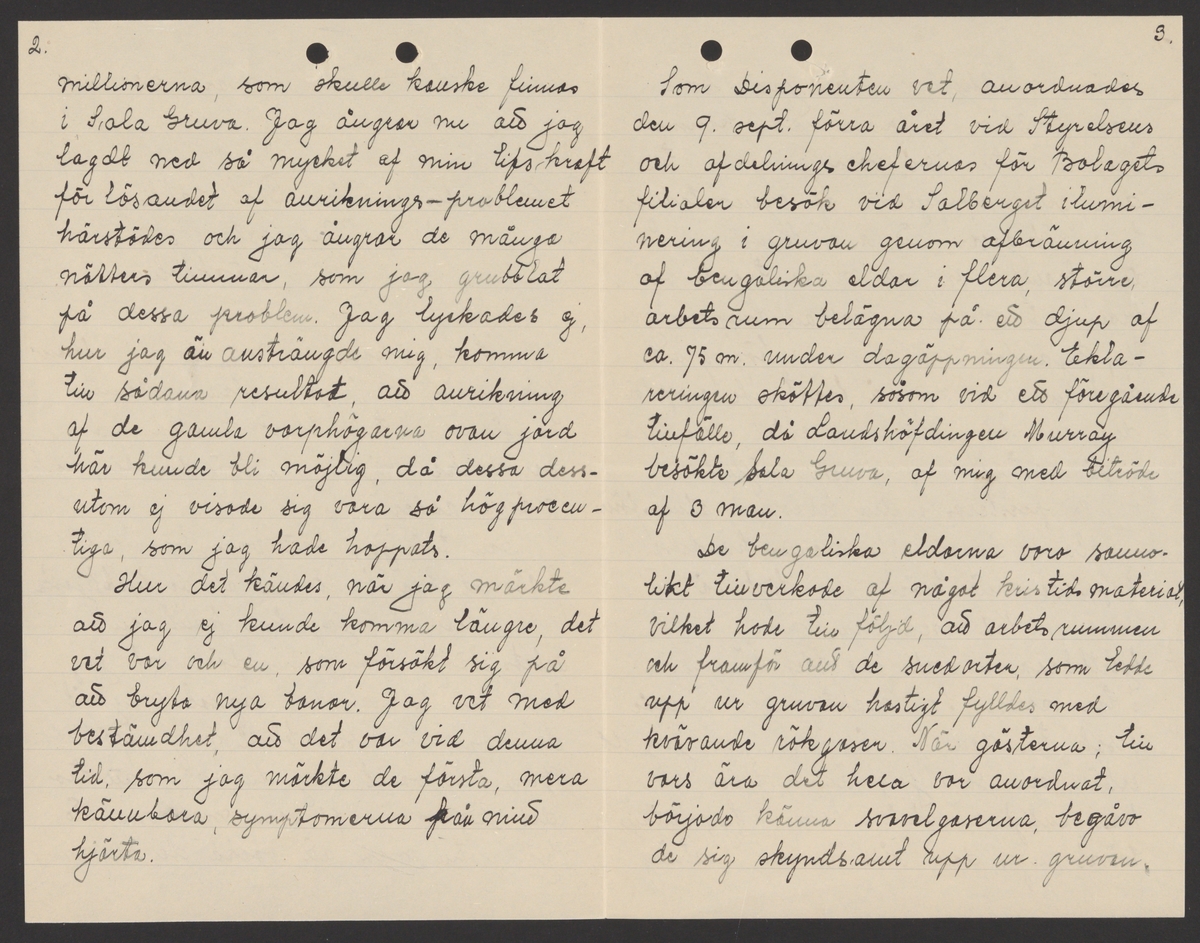 2.
millionerna, som skulle kanske finnas
i Sala Gruva. Jag ångrar nu att jag
lagdt ned så mycket af min lifskraft
för lösandet af anriknings-problemet
härstädes och jag ångrar de många
nätters timmar, som jag grubblat
på dessa problem. Jag lyckades ej,
hur jag än ansträngde mig, komma
till sådana resultat, att anrikning
af de gamla varphögarna ovan jord
här kunde bli möjlig, då dessa dess-
utom ej visade sig vara så högprocen-
tiga, som jag hade hoppats.
Hur det kändes, när jag märkte
att jag ej kunde komma längre, det
vet var och en, som försökt sig på
att bryta nya banor. Jag vet med
bestämdhet, att det var vid denna
tid, som jag märkte de första, mera
kännbara, symptomerna från mitt
hjärta.
3.
Som Disponenten vet, anordnades
den 9. sept. förra året vid Styrelsens
och afdelnings chefernas för Bolagets
filialer besök vid Salberget ilumi-
nering i gruvan genom afbränning
af bengaliska eldar i flera, större,
arbetsrum belägna på ett djup af
ca. 75 m. under dagöppningen. Ekla-
reringen sköttes, såsom vid ett föregående
tillfälle, då Landshöfdingen Murray
besökte Sala Gruva, af mig med biträde
af 3 man.
De bengaliska eldarna voro sanno-
likt tillverkade af något kristidsmaterial,
vilket hade till följd, att arbetsrummen
och framför allt de snedorter, som ledde
upp ur gruvan hastigt fylldes med
kvävande rökgaser. När gästerna, till
vars ära det hela var anordnat,
började känna svavelgaserna, begåvo
de sig skyndsamt upp ur gruvan.